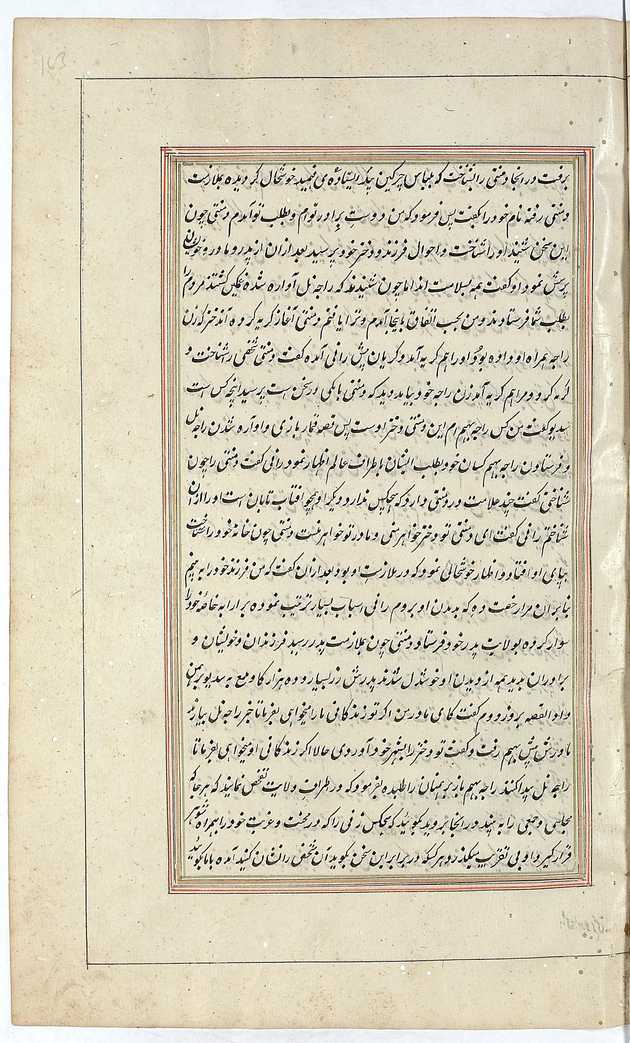 163
برفت در انجا دمنتی را بشناخت که بلباس چرکین یکجا ایستاده می فهمید خوشحال کردیده بملازمت
دمنتی رفته نام خود را گفت پس فرمود که من دوست برادر توام و بطلب تو آمدم دمنتی چون
این سخن شنید او را شناخت و احوال فرزند و دختر خود پرسید بعد ازان از پدر و مادر و خویشان
پرسش نمود او گفت همه بسلامت اند اما چون شنیدند که راجه نل آواره شده غمکین کشتند مردم را
بطلب شما فرستادند و من بحسب اتفاق باینجا آمدم و ترا یافتم دمنتی آغاز کریه کرد آن دختر که زن
راجه همراه او داده بود او را هم کریه آمد و کریان پیش رانی آمده گفت دمنتی شخصی را شناخت و
کریه کرد و مرا هم کریه آمد زن راجه خود بیامد دید که دمنتی با یکی در سخن است پرسید اینچه کس است
سدیو گفت من کس راجه بهیم ام این دمنتی دختر اوست پس قصه قمار بازی و آواره شدن راجه نل
و فرستادن راجه بهیم کسان خود بطلب ایشان باطراف عالم اظهار نمود رانی گفت دمنتی را چون
شناختی گفت چند علامت در دمنتی دارد که هیچکس ندارد دیگر او همچو آفتاب تابان است او را ازان
شناختم رانی گفت ای دمنتی تو دختر خواهر منی و مادر تو خواهر منست دمنتی چون خاله خود را شناخت
بپای او افتاد و اظهار خوشحالی نمود که در ملازمت او بود بعد ازان گفت که من فرزند خود را به بینم
بنابران مرا رخصت ده که بدیدن او بروم رانی اسباب بسیار ترتیب نموده برارابه خاصه خود را
سوار کرده بولایت پدر خود فرستاد دمنتی چون بملازمت پدر رسید فرزندان و خویشان و
برادران بدید همه از دیدن او خوشدل شدند پدرش زر بسیار و ده هزار کاو مع به سدیو برهمن
داد القصه روز دوم گفت که ای مادر من اکر تو زندکانی مارا میخواهی بفرما تا خبر راجه نل بیارند
مادرش پیش بهیم رفت و گفت تو دختر را بشهر خود آوردی حالا اکر زندکانی او میخواهی بفرما تا
راجه نل پیدا کنند راجه بهیم باز برهمنان را طلبیده بفرمود که در طراف ولایت تفحص نمایند که هر جا که
مجلسی و جمعی را به بینند در انجا بروید بکوئید که هیچکس زنی را که در محنت و غربت خود را بهمراه شوهر
قرار گیرد او بی تقریب میگذارد هر که در برابر این سخن بگوید آن شخص را نشان کنید آمده با ما بگوئید